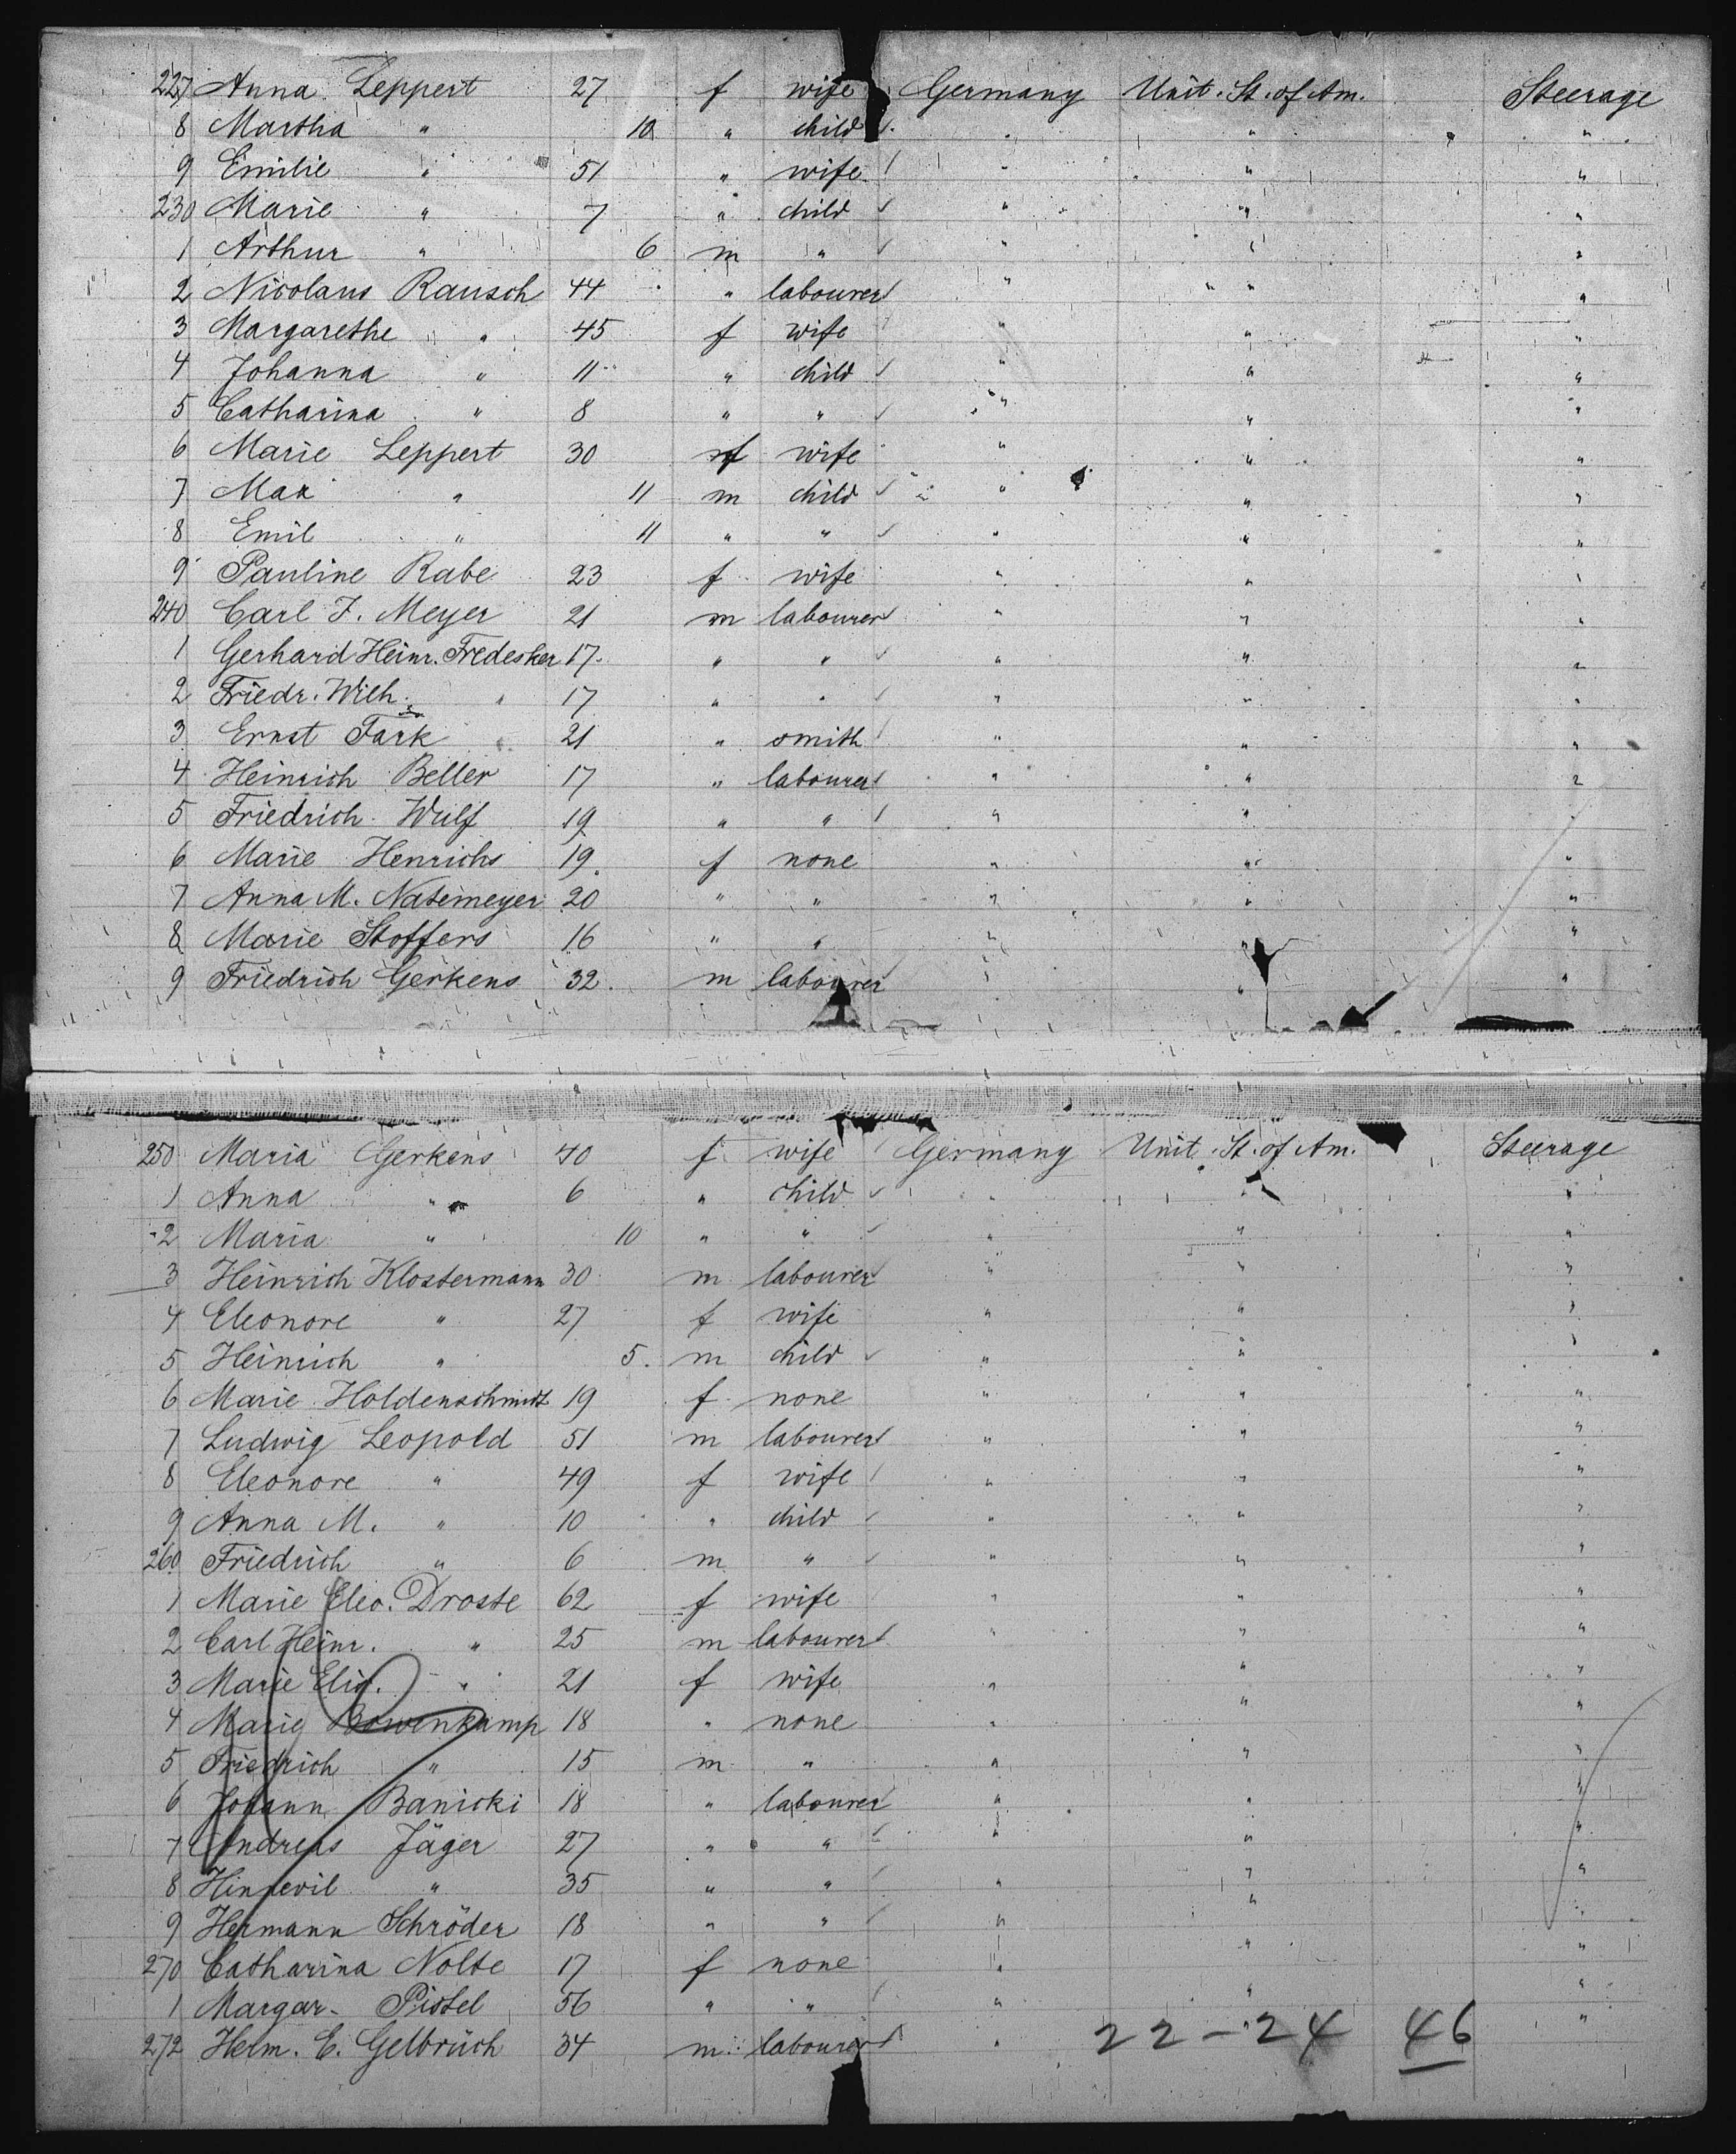 227 Anna Leppert 27 f wife Germany Unit. St. of Am. Steerage
8 Martha " 10 " child " " "
9 Emilie " 51 " wife " " "
230 Marie " 7 " child " " "
1 Arthur " 6 m " " " "
2 Nicolaus Rausch 44 " labourer " " "
3 Margarethe " 45 f wife " " "
4 Johanna " 11 " child " " "
5 Catharina " 8 " " " " "
6 Marie Leppert 30 f wife " " "
7 Max " 11 m child " " "
8 Emil " 11 " " " " "
9 Pauline Rabe 23 f wife " " "
240 Carl F. Meyer 21 m labourer " " "
1 Gerhard Heinr. Fredesker 17 " " " " "
2 Friedr. Wilh. " 17 " " " " "
3 Ernst Fark 21 " smith " " "
4 Heinrich Beller 17 " labourer " " "
5 Friedrich Wulf 19 " " " " "
6 Marie Henrichs 19 f none " " "
7 Anna M. Natemeyer 20 " " " " "
8 Marie Stoffers 16 " " " " "
9 Friedrich Gerkens 32 m labourer " " "
250 Maria Gerkens 40 f wife Germany Unit. St. of Am. Steerage
1 Anna " 6 " child " " "
2 Maria " 10 " " " " "
3 Heinrich Klostermann 30 m labourer " " "
4 Eleonore " 27 f wife " " "
5 Heinrich " 5 m child " " "
6 Marie Holdenschmidt 19 f none " " "
7 Ludwig Leopold 51 m labourer " " "
8 Eleonore " 49 f wife " " "
9 Anna M. " 10 " child " " "
260 Friedrich " 6 m " " " "
1 Marie Eleo. Droste 62 f wife " " "
2 Carl Heinr. " 25 m labourer " " "
3 Marie " 21 f wife " " "
4 Marie Bowenkamp 18 " none " " "
5 Friedrich " 15 m " " " "
6 Johann Banicki 18 " labourer " " "
7 Andreas Jäger 27 " " " " "
8 " 35 " " " " "
9 Hermann Schröder 18 " " " " "
270 Catharina Nolte 17 f none " " "
1 Margar. Pistel 56 " " " " "
272 Helm. E. Gelbrüch 34 m labourer " " "
22-24 46